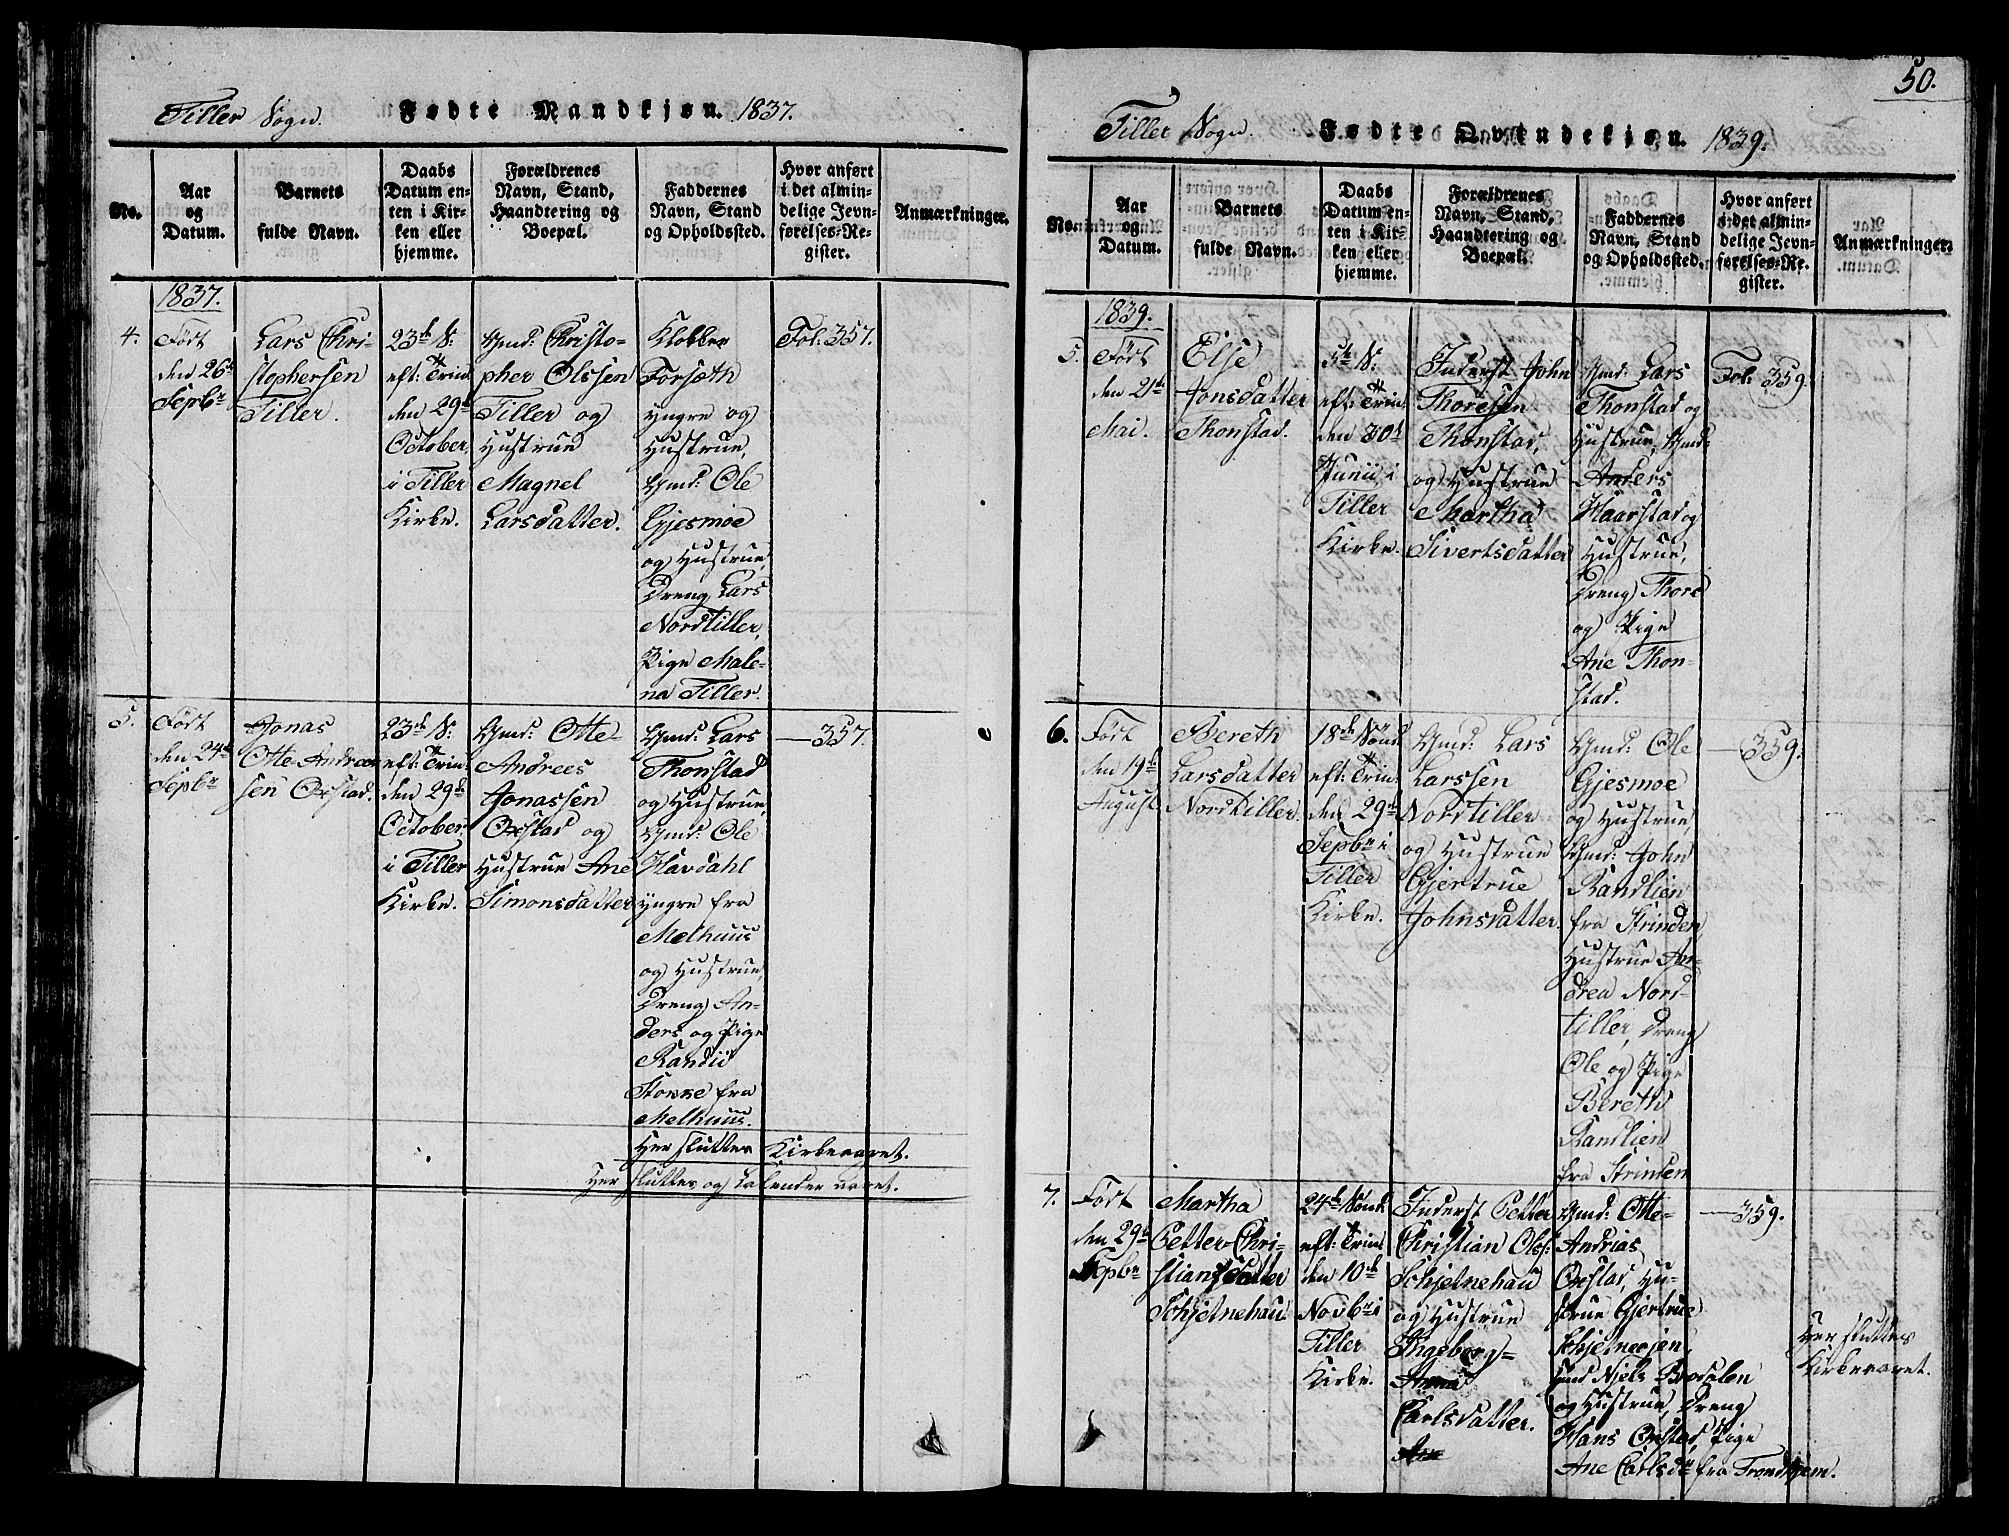 Tiller Sogn. Fødte Mandkjøn. 1837.
No.
Aar
og
Datum.
Barnets
fulde Navn.
Daabs
Datum en-
ten i Kir-
ken eller
hjemme.
Forældrenes
Navn, Stand,
Haandtering og
Boepæl.
Faddernes
Navn, Stand
og Opholdssted.
Hvor anført
i det almin-
delige Jevn-
førelses-Re-
gister.
Anmærkninger.
1837.
4.
Født
den 26de
Sepbr
Lars Chri-
stophersen
Tiller.
23de S:
eft: Trin:
den 29de
October,
i Tiller
Kirke.
Gmd: Christo-
pher Olssen
Tiller og
Hustrue
Magnel
Larsdatter.
Klokker
Forsæth
yngre og
Hustrue,
Gmd: Ole
Gjesmoe
og Hustrue,
Dreng Lars
Nordtiller,
Pige Male-
na Tiller.
Fol: 357.
5.
Født
den 24de
Sepbr
Jonas
Otte Andrea-
sen Oxstad.
23de S:
eft: Trin:
den 29de
October,
i Tiller
Kirke.
Gmd: Otte-
Andrees
Jonassen
Oxstad og
Hustrue Ane
Simonsdatter
Gmd: Lars
Thonstad
og Hustrue,
Gmd: Ole
Havdahl
yngre fra
Melhuus
og Hustrue,
Dreng An-
ders og Pige
Randii
fra
Melhuus.
—357.
Her sluttes Kirkeaaret.
Her sluttes og Calender aaret.
50.
Tiller Sogn. Fødte Qvindekjøn. 1839.
No.
Aar
og
Datum.
Barnets
fulde Navn.
Daabs
Datum en-
ten i Kir-
ken eller
hjemme.
Forældrenes
Navn, Stand,
Haandtering og
Boepæl.
Faddernes
Navn, Stand
og Opholdssted.
Hvor anført
i det almin-
delige Jevn-
førelses-Re-
gister.
Anmærkninger.
1839.
5.
Født
den 21de
Mai.
Else
Jonsdatter
Thonstad.
5te S:
eft: Trin:
den 30de
Junii, i
Tiller
Kirke.
Inderst John
Thoresen
Thonstad,
og Hustrue
Martha
Sivertsdatter
Gmd: Lars
Thonstad og
Hustrue, Gmd:
Anders
Haarstad og
Hustrue,
Dreng Thore
og Pige
Ane Thon-
stad.
Fol: 359.
6.
Født
den 19de
August
Bereth
Larsdatter
Nordtiller.
18de Sønd:
eft: Trin:
den 29de
Sepbr i
Tiller
Kirke.
Gmd: Lars
Larssen
Nordtiller
og Hustrue
Gjertrue
Johnsdatter.
Gmd: Ole
Gjesmoe
og Hustrue,
Gmd: John
Randlien
fra Strinden
Hustrue An-
drea Nord-
tiller, Dreng
Ole og Pige
Bereth
Randlien
fra Strinden
—359.
7.
Født
den 29de
Sepbr
Martha
Petter Chri-
stiansdatter
Schjelnehau.
24de Sønd:
eft: Trin:
den 10de
Novbr i
Tiller
Kirke.
Inderst Petter
Christian Olss:
Schjelnehau
og Hustrue
Ingeborg-
Anna
Carlsdatter.
Gmd: Otte-
Andrias
Oxstad, Hu-
strue Gjertrue
Gmd Njels
og Hustrue, Dreng
Hans Oxstad, Pige
Ane Carlsdr fra Trondhjem.
—359.
Her sluttes
Kirkeaaret.